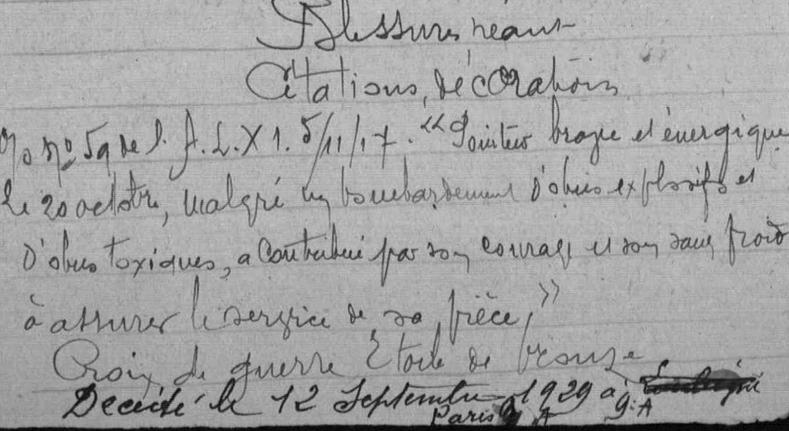 Blessures néant
Citations, décorations
n° 59 de l. A.L.X 1. 5/11/17. "Pointeur brave et énergique
Le 20 octobre, malgré un bombardement d'obus explosifs et
d'obus toxiques, a contribué par son courage et son sang froid
à assurer le service de sa pièce,"
Croix de guerre Etoile de bronze
Decédé le 12 Septembre 1929 à
Paris